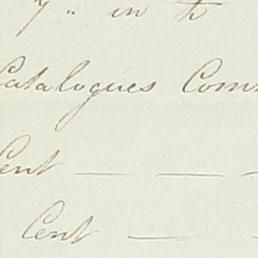 7 " in t
Catalogues Com
Cent — — —
Cent — —